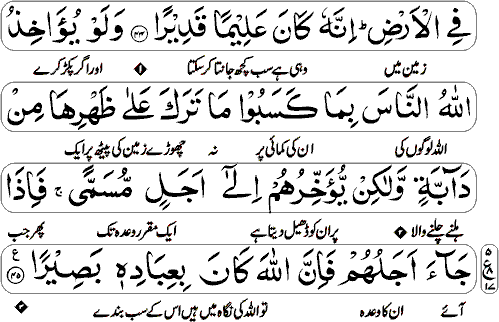 فِي الْاَرْضِ ؕ اِنَّهٗ كَانَ عَلِيْمًا قَدِيْرًا ﴿۴۴﴾ وَلَوْ يُؤَاخِذُ
زمین میں وہی ہے سب کچھ جانتا کر سکتا ۱ اور اگر پکڑ کرے
اللّٰهُ النَّاسَ بِمَا كَسَبُوْا مَا تَرَكَ عَلٰى ظَهْرِهَا مِنْ
اللہ لوگوں کی ان کی کمائی پر نہ چھوڑے زمین کی پیٹھ پر ایک
دَآبَّةٍ وَّلٰكِنْ يُّؤَخِّرُهُمْ اِلٰٓى اَجَلٍ مُّسَمًّى ۚ فَاِذَا
ہلنے چلنے والا ۲ پر ان کو ڈھیل دیتا ہے ایک مقرر وعدہ تک پھر جب
جَآءَ اَجَلُهُمْ فَاِنَّ اللّٰهَ كَانَ بِعِبَادِهٖ بَصِيْرًا ﴿۴۵﴾ ع
۵ ع ۸ ۱۷
آئے ان کا وعدہ تو اللہ کی نگاہ میں ہیں اس کے سب بندے ۳